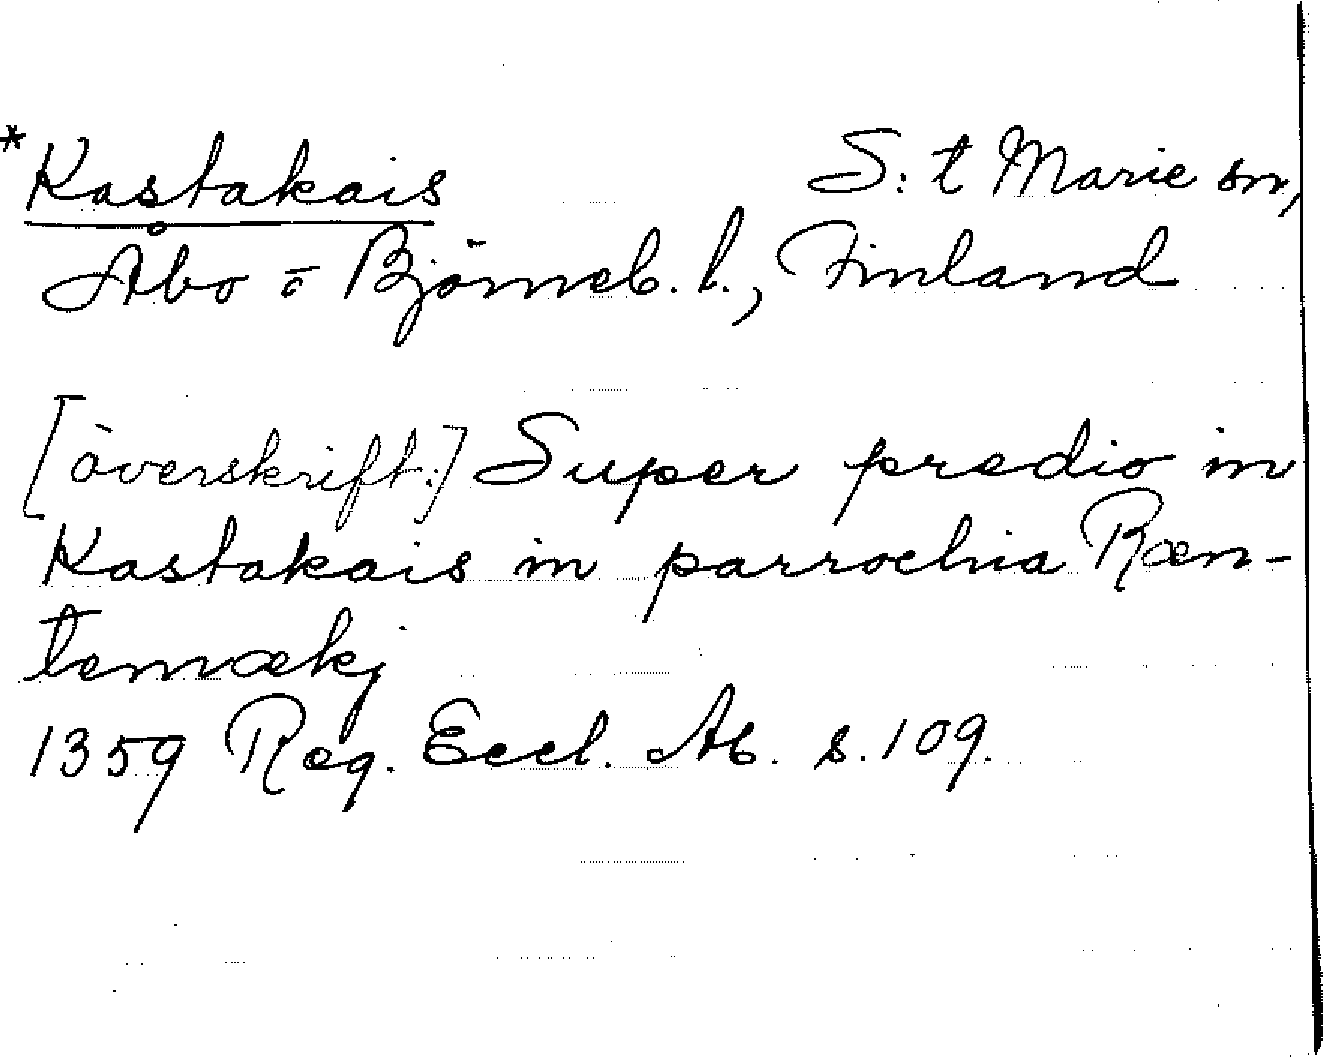 *Kastakais S:t Marie sn,
Åbo o Björneb. l., Finland
[överskrift:] Super predio in
Kastakais in parrochia Ræn-
temækj
1359 Reg. Eccl. Ab. s. 109.